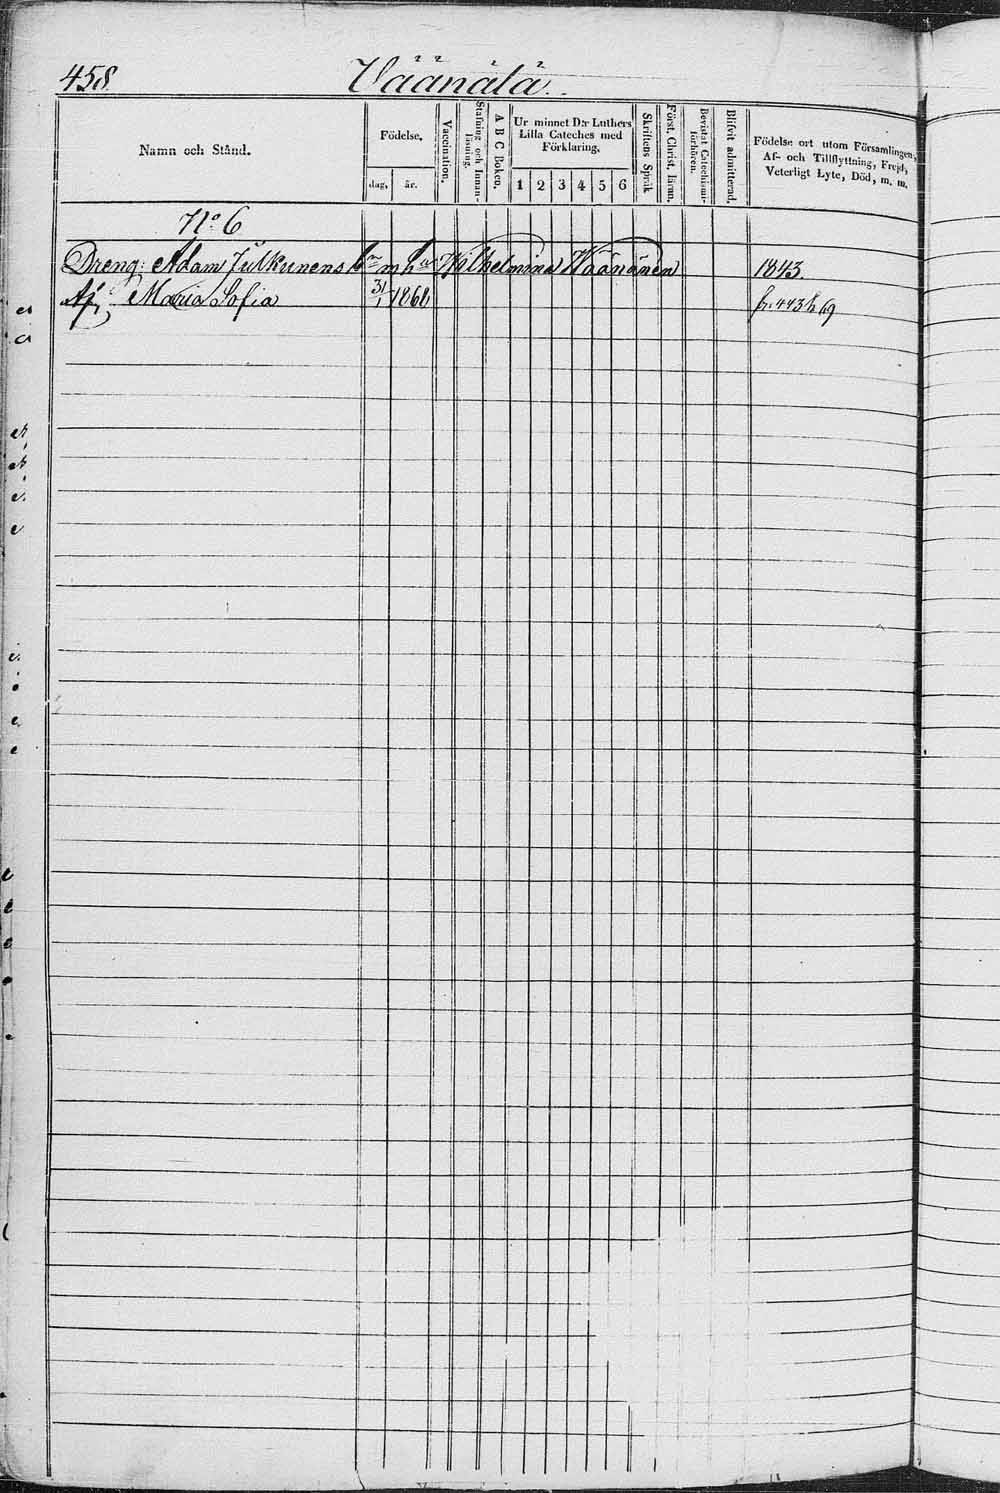 458.
Väänälä.
Namn och Stånd.
Födelse.
dag.
år.
Vaccination.
Stafning och Innanläsning.
A B C Boken.
Ur minnet D:r Luthers Lilla Cateches med Förklaring.
1 2 3 4 5 6
Skriftens Språk
Först. Christ. läran.
Bevistat Catechismi-förhören.
Blifvit admitterad.
Födelse ort utom Församlingen,
Af- och Tillflyttning, Frejd,
Veterligt Lyte, Död, m. m.
No 6
Dreng: Adam Julkunens Wilhelmina Wäänänen 1843.
Maria Sofia 31/1 1868 fr. 443 h 69